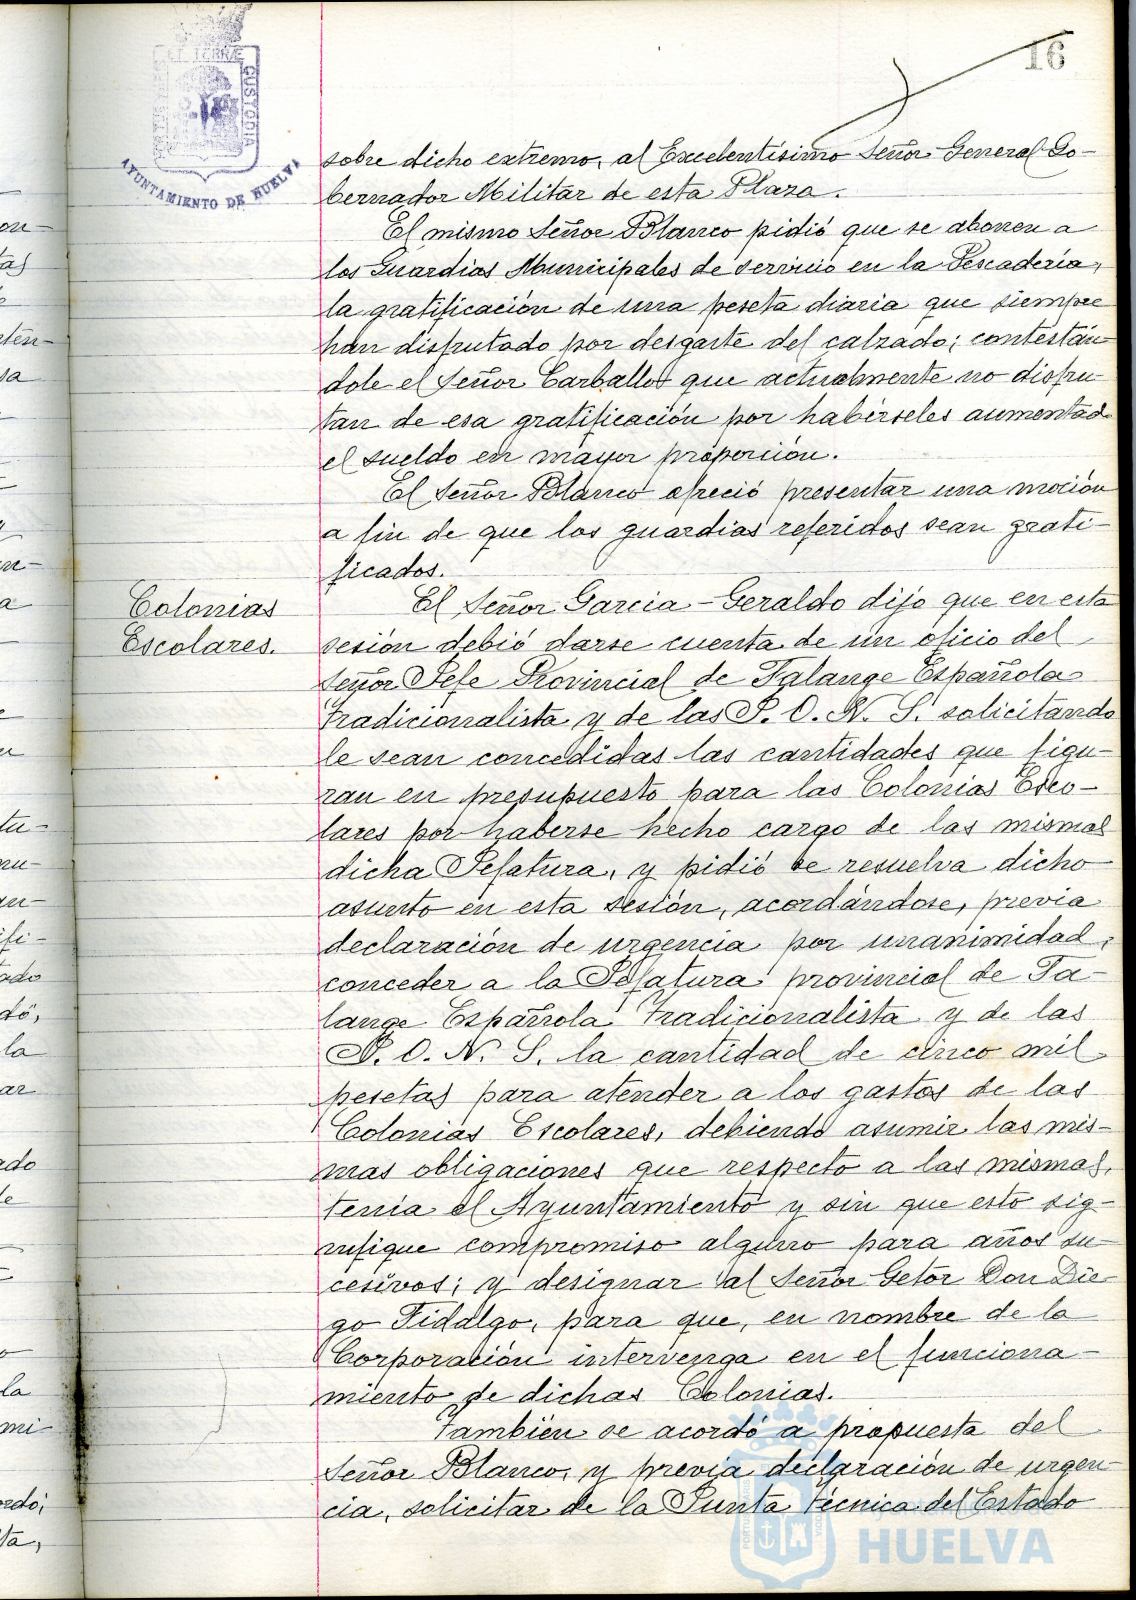 16
AYUNTAMIENTO DE HUELVA
CUSTODIA
sobre dicho extremo, al Excelentísimo Señor General Go-
bernador Militar de esta Plaza.
El mismo Señor Blanco pidió que se abonen a
los Guardias Municipales de servicio en la Pescadería,
la gratificación de una peseta diaria que siempre
han disfrutado por desgaste del calzado; contestán-
dole el Señor Carballo que actualmente no disfru-
tan de esa gratificación por habérseles aumentado
el sueldo en mayor proporción.
El Señor Blanco ofreció presentar una moción
a fin de que los guardias referidos sean grati-
ficados.
Colonias
Escolares.
El Señor García-Geraldo dijo que en esta
sesión debió darse cuenta de un oficio del
Señor Jefe Provincial de Falange Española
Tradicionalista y de las J. O. N. S. solicitando
le sean concedidas las cantidades que figu-
ran en presupuesto para las Colonias Esco-
lares por haberse hecho cargo de las mismas
dicha Jefatura, y pidió se resuelva dicho
asunto en esta sesión, acordándose, previa
declaración de urgencia por unanimidad,
conceder a la Jefatura provincial de Fa-
lange Española Tradicionalista y de las
J. O. N. S. la cantidad de cinco mil
pesetas para atender a los gastos de las
Colonias Escolares, debiendo asumir las mis-
mas obligaciones que respecto a las mismas,
tenía el Ayuntamiento y sin que esto sig-
nifique compromiso alguno para años su-
cesivos; y designar al Señor Getor Don Die-
go Fidalgo, para que, en nombre de la
Corporación intervenga en el funciona-
miento de dichas Colonias.
También se acordó a propuesta del
Señor Blanco, y previa declaración de urgen-
cia, solicitar de la Junta Técnica del Estado
HUELVA